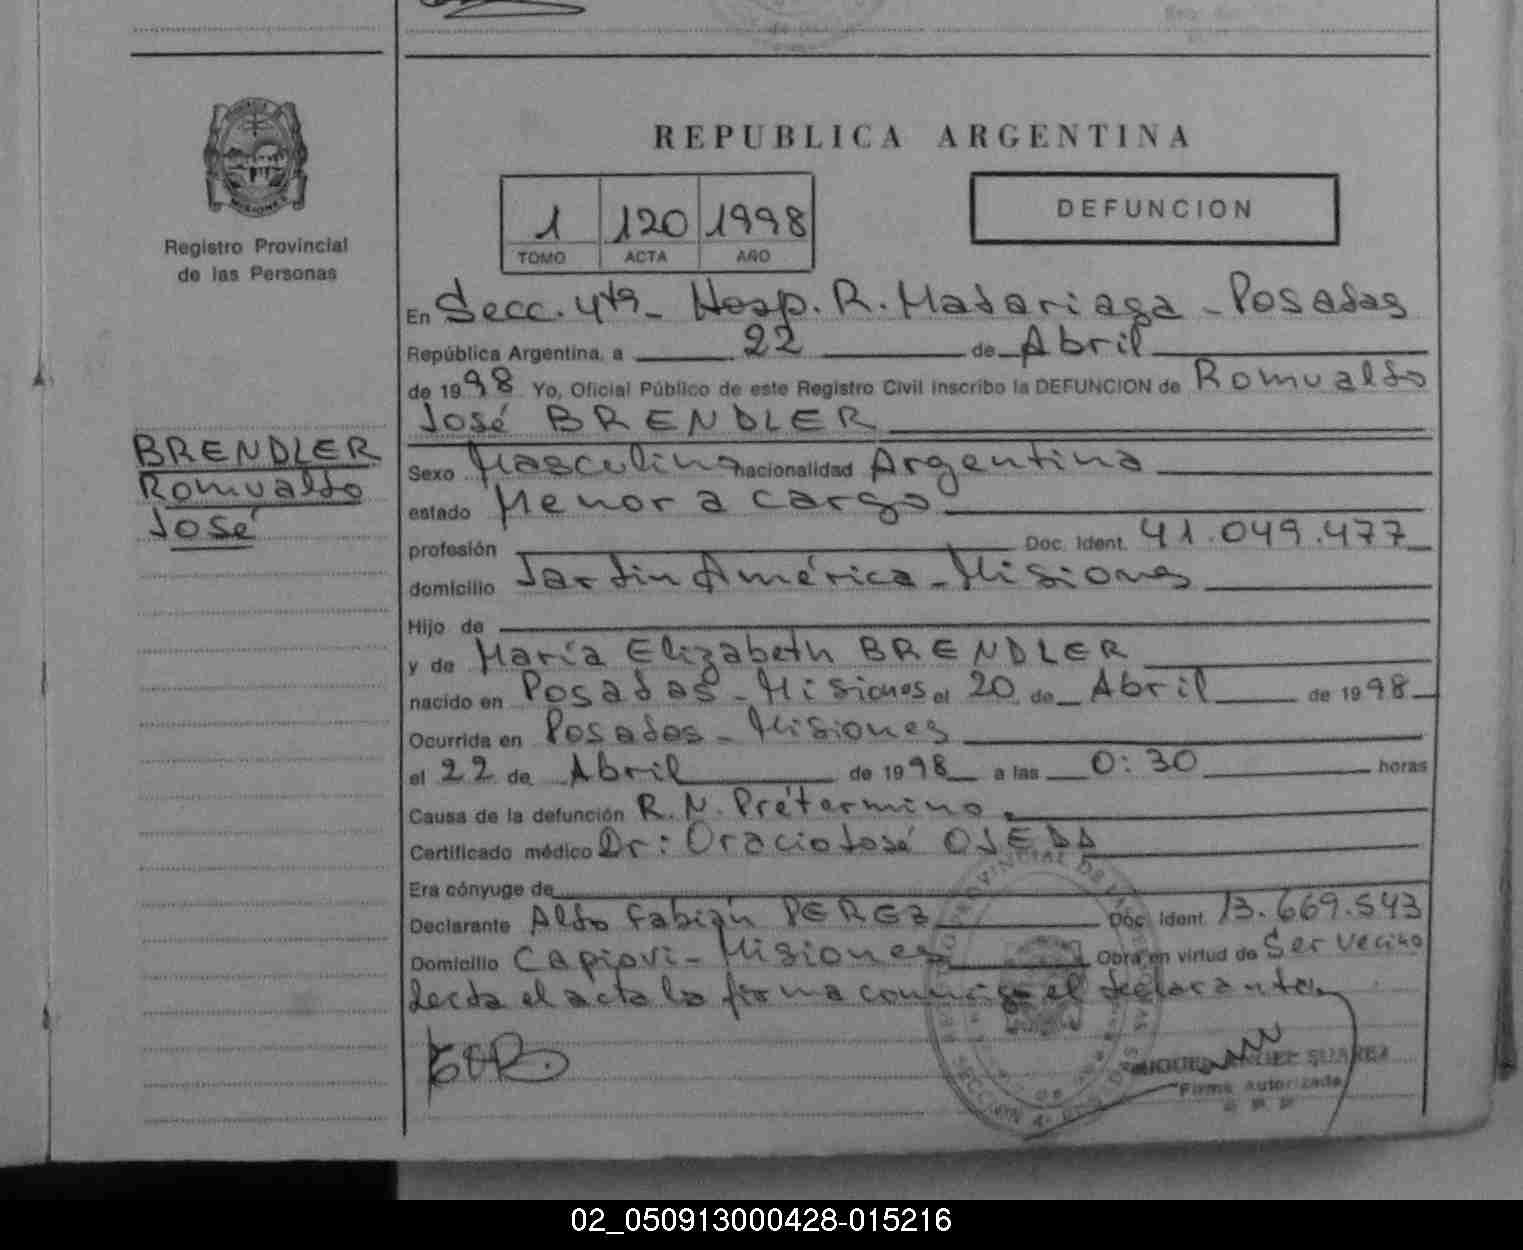 REPUBLICA ARGENTINA
MISIONES
Registro Provincial
de las Personas
1 120 1998
TOMO ACTA AÑO
DEFUNCION
BRENDLER
Romualdo
José
En Secc. 4ta - Hosp. R. Madariaga - Posadas
República Argentina, a 22 de Abril
de 1998 Yo, Oficial Público de este Registro Civil inscribo la DEFUNCION de Romualdo
José BRENDLER
Sexo Masculino nacionalidad Argentina
estado Menor a cargo
profesión Doc. Ident. 41.049.477
domicilio Jardin América - Misiones
Hijo de
y de María Elizabeth BRENDLER
nacido en Posadas - Misiones el 20 de Abril de 1998
Ocurrida en Posadas - Misiones
el 22 de Abril de 1998 a las 0:30 horas
Causa de la defunción R.N. Prétermino
Certificado médico Dr: Oracio José OJEDA
Era cónyuge de
Declarante Aldo Fabián PEREZ Doc. Ident. 13.669.543
Domicilio Capiovi - Misiones Obra en virtud de Ser vecino
Leida el acta la firma conmigo el declarante
MIGUEL ANGEL SUAREZ
Firma Autorizada
02_050913000428-015216